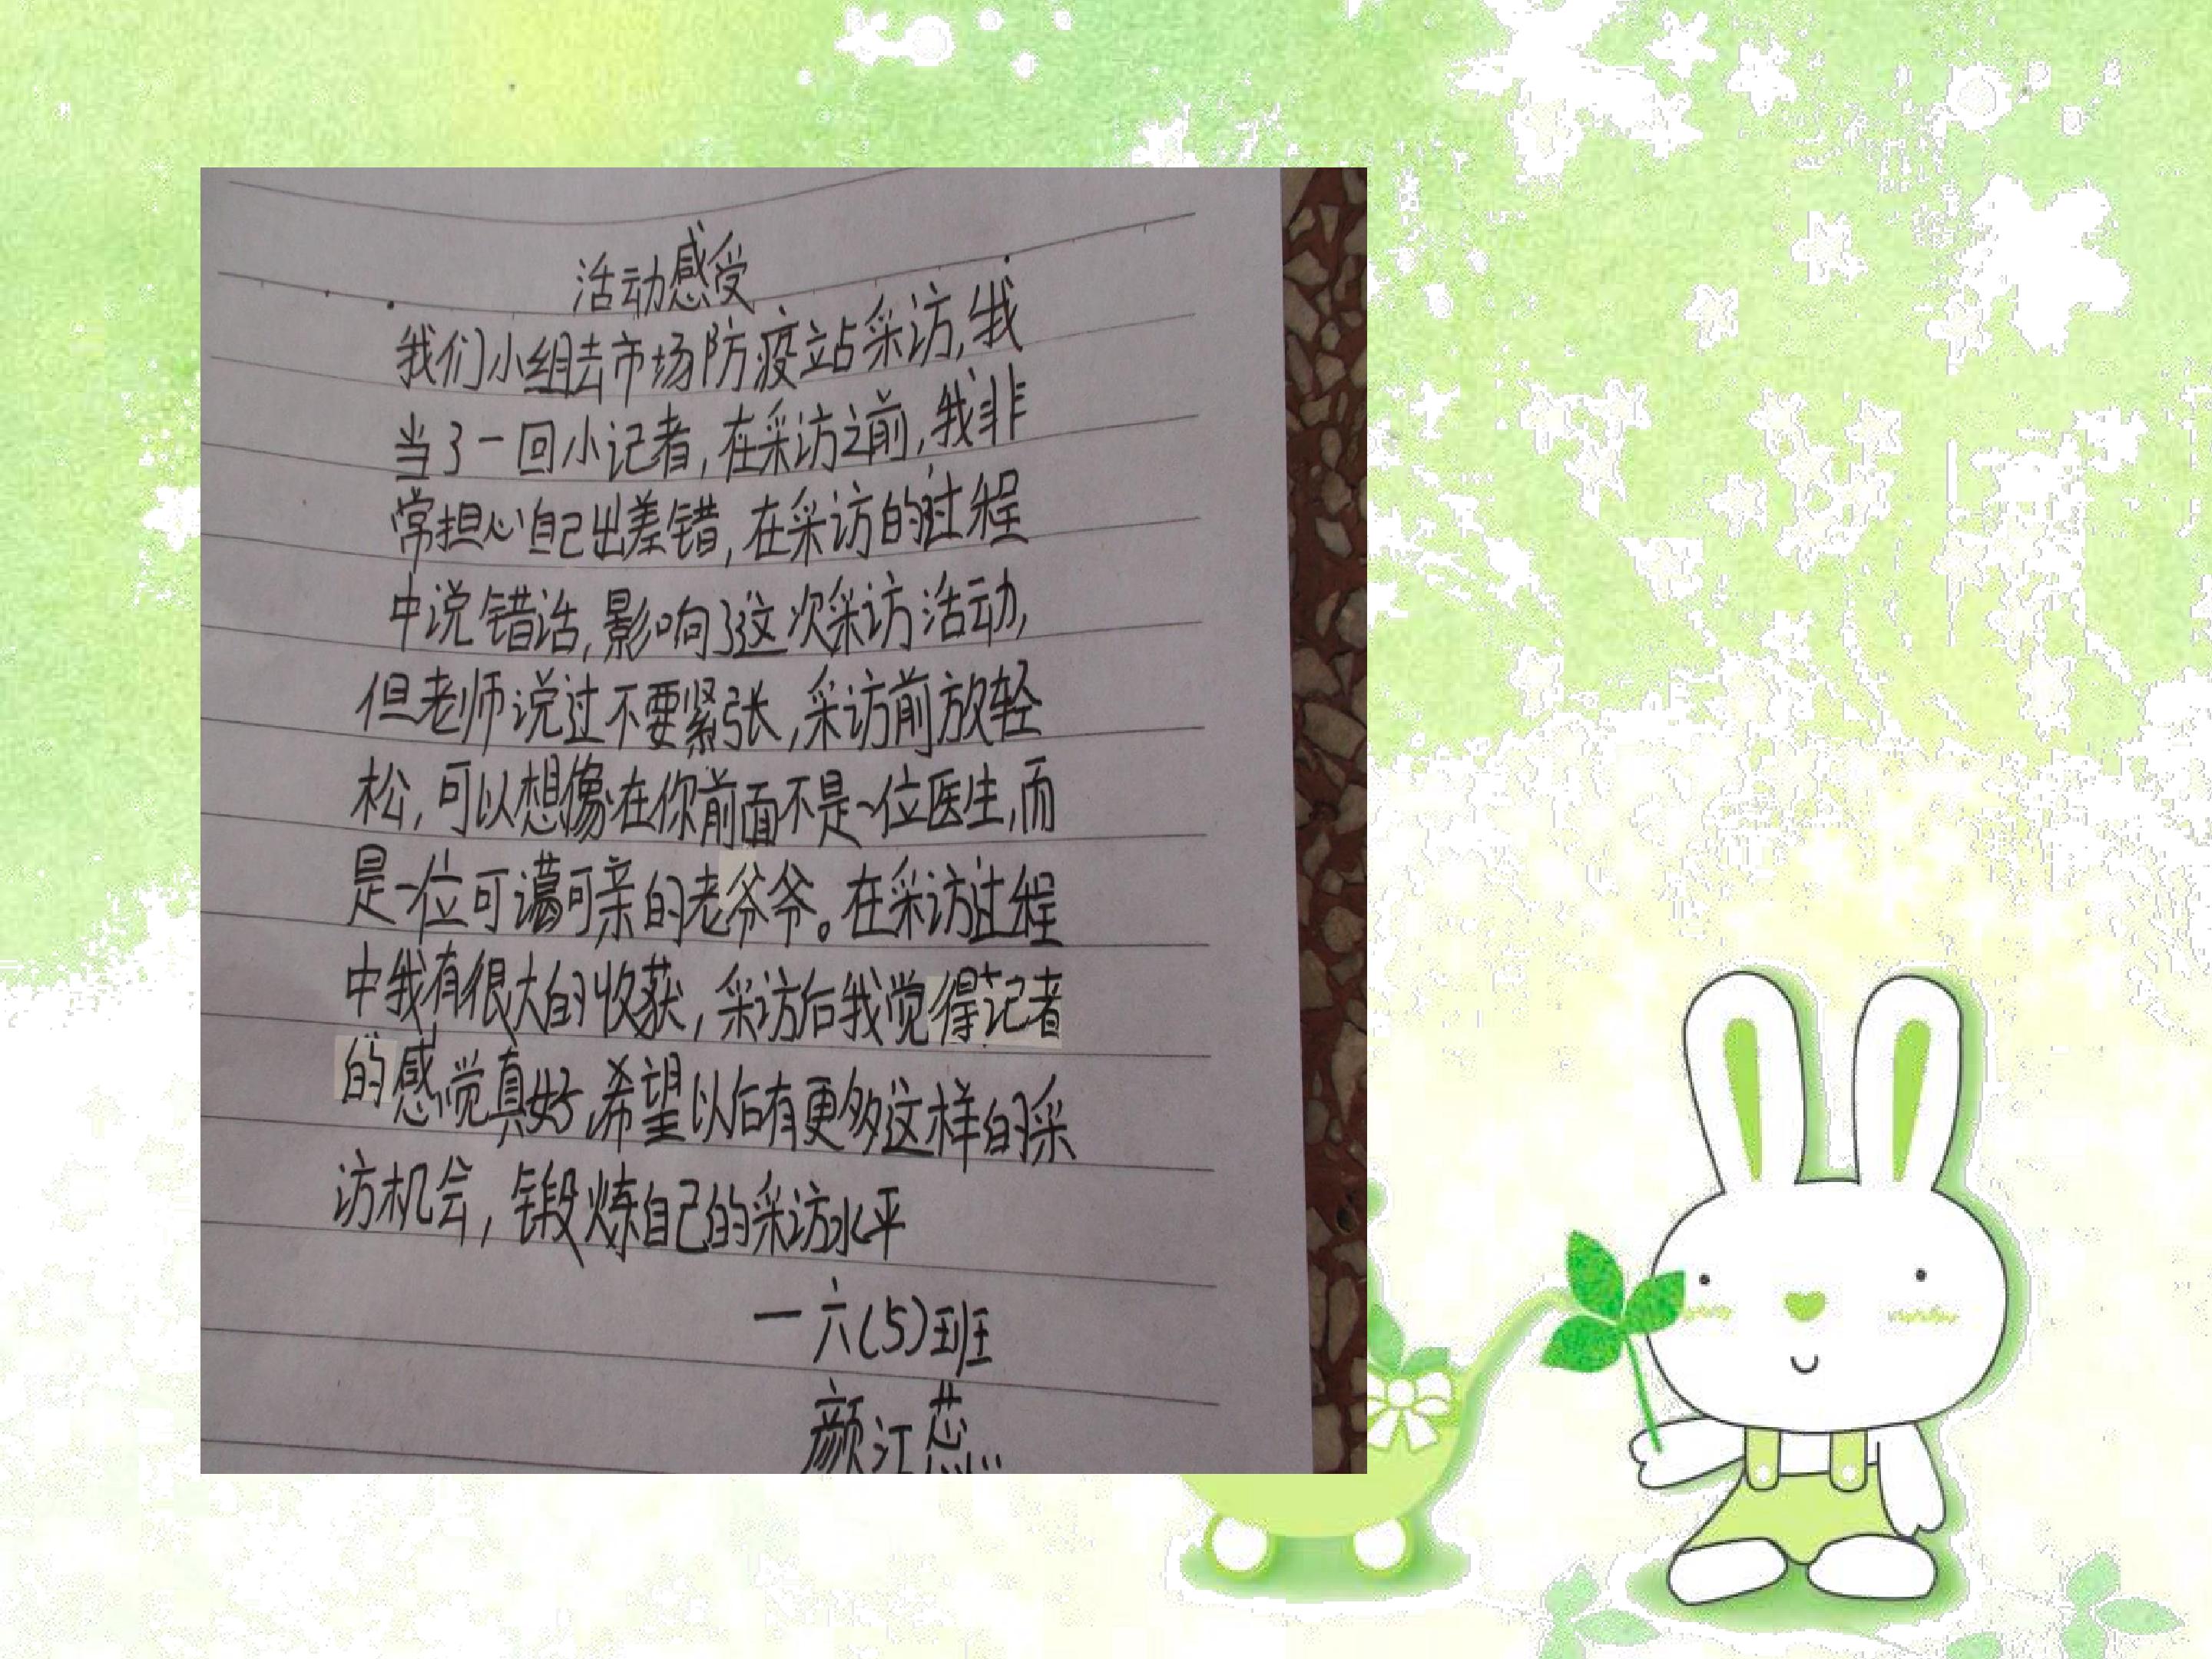 活动感受
我们小组去市场防疫站采访,我
当了一回小记者,在采访之前,我非
常担心自己出差错,在采访的过程
中说错话,影响了这次采访活动,
但老师说过不要紧张,采访前放轻
松,可以想像在你前面不是一位医生,而
是一位可谒可亲的老爷爷。在采访过程
中我有很大的收获,采访后我觉得记者
的感觉真好,希望以后有更多这样的采
访机会,锻炼自己的采访水平
一六(5)班
颜江